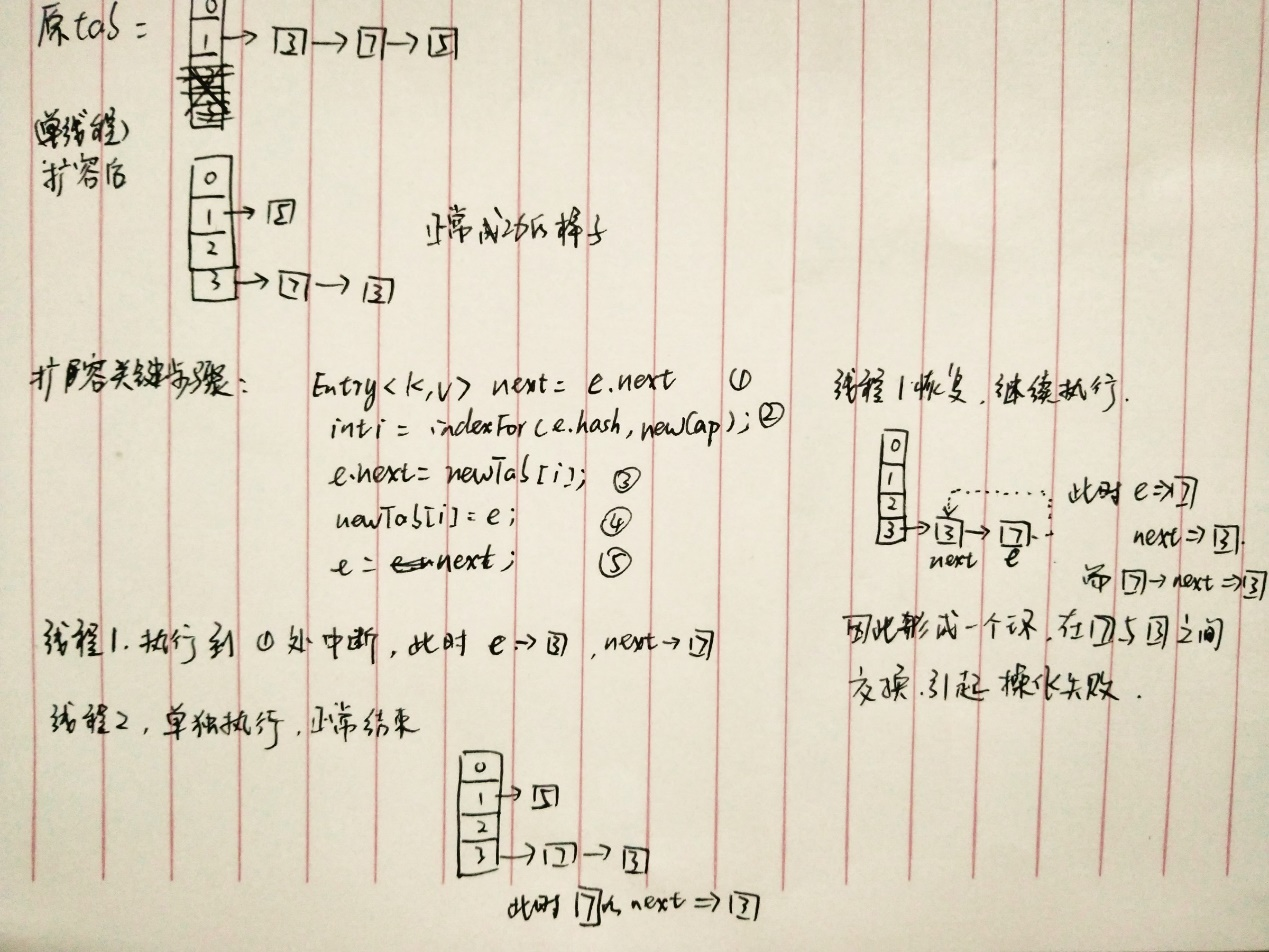 原tab =
0
1 → 3 → 7 → 5
(单线程)
扩容后
0
1 → 5
2
3 → 7 → 3
正常成功的样子
扩容关键步骤:
Entry<k,v> next = e.next ①
int i = indexFor(e.hash, newCap); ②
e.next = newTab[i]; ③
newTab[i] = e; ④
e = next; ⑤
线程1.执行到 ① 处中断,此时 e → 3 , next → 7
线程2, 单独执行, 正常结束
0
1 → 5
2
3 → 7 → 3
此时 7的 next ⇒ 3
线程1恢复, 继续执行.
0
1
2
3 → 3 → 7
next e
此时 e ⇒ 7
next ⇒ 3.
而 7 → next ⇒ 3
因此形成一个环, 在 7 与 3 之间
交换.引起操作失败.